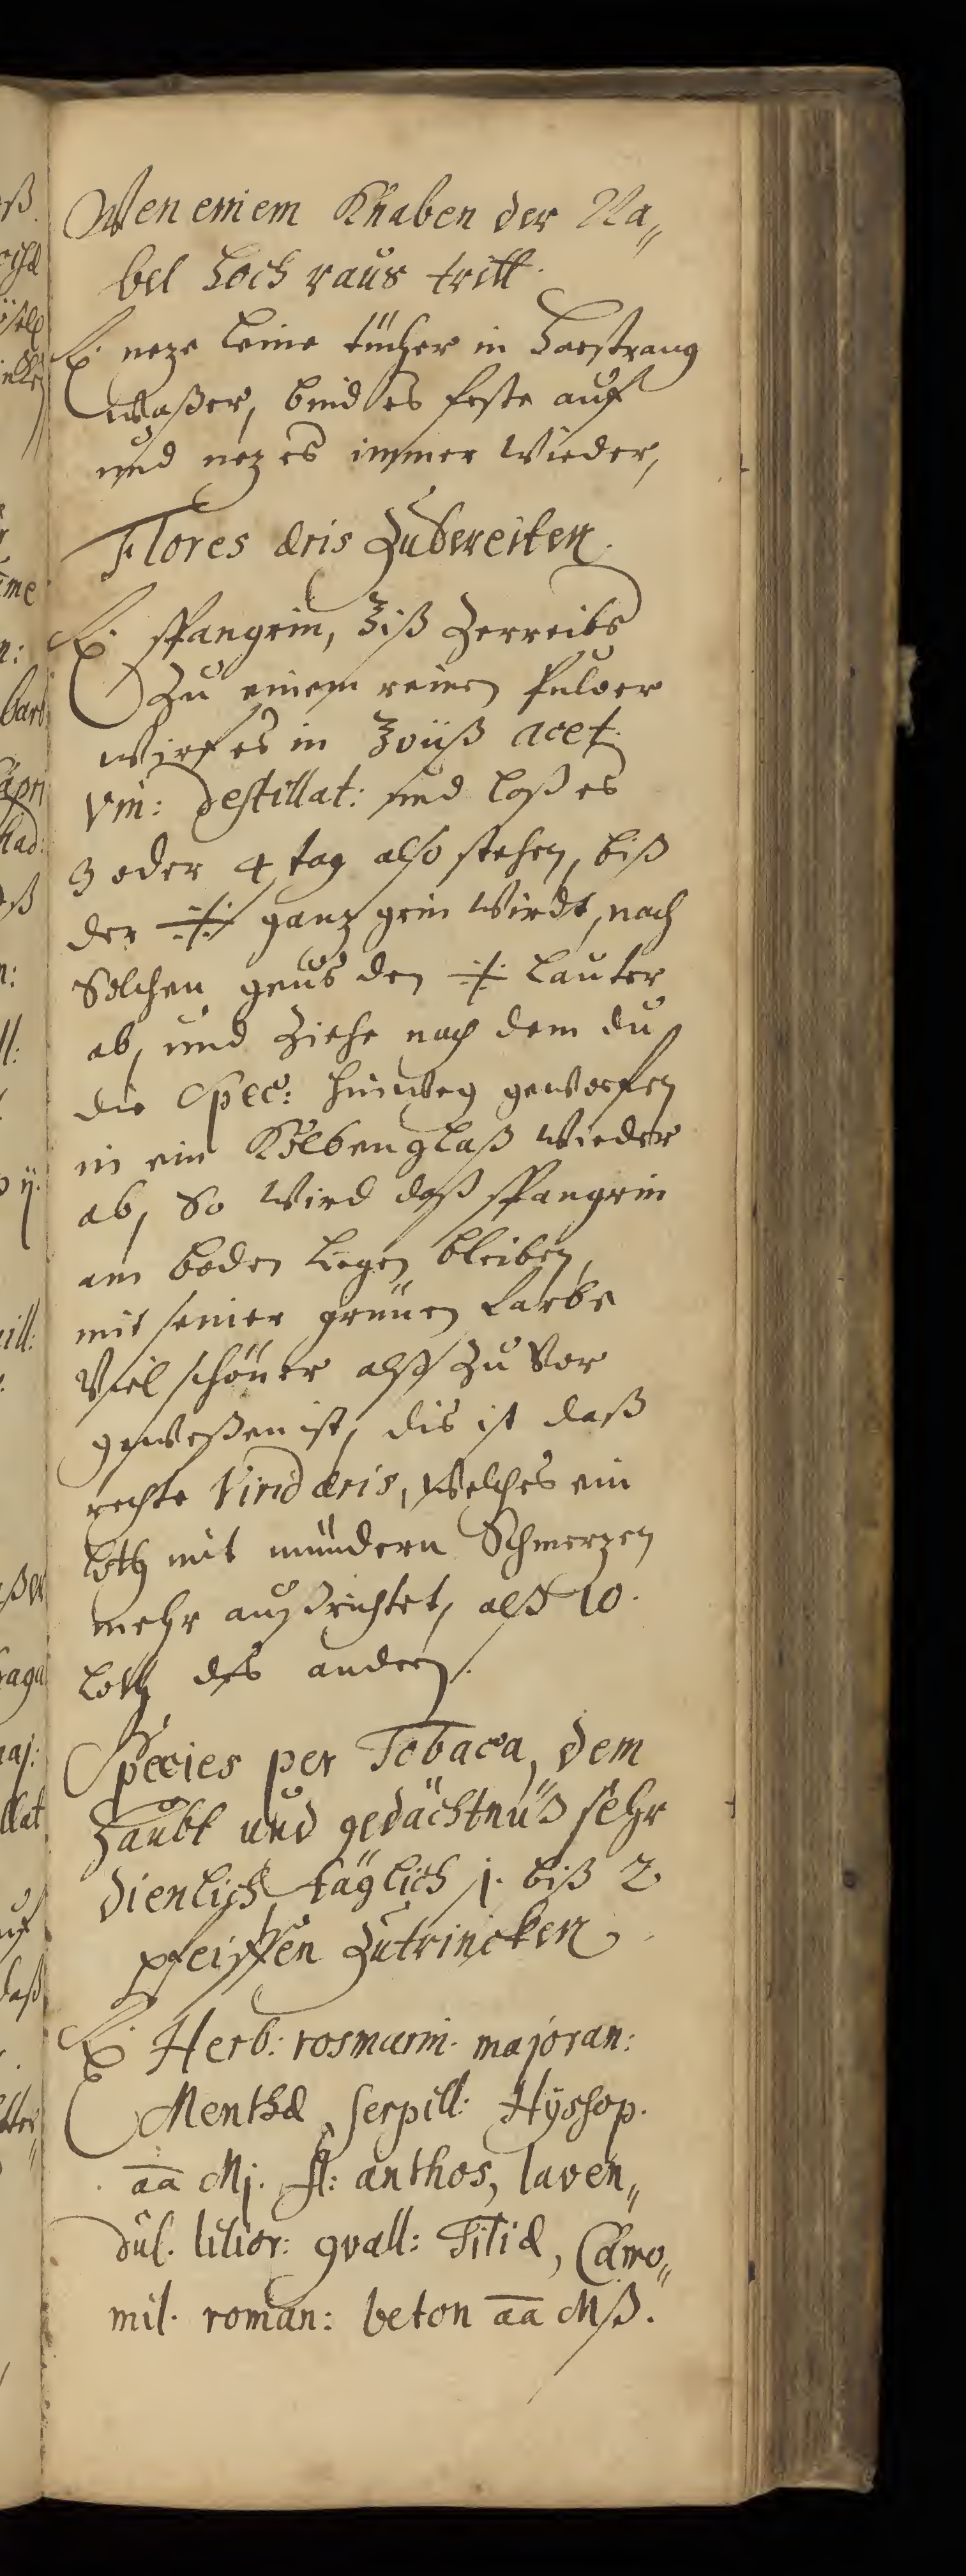 Wen einem Knaben der Na„
bel Hoch raus tritt.
℞. neze leine tücher in Harstrang
waßer, bind es feste auf
und nez es immer wieder,
Flores æris Zubereiten.
℞. spangrin, ℥iß Zerreibs
Zu einem reinen Pulver
wirf es in ℥viiß acet.
Vin: destillat: und laß es
3 oder 4 tag also stehen, biß
der ·/. ganz grin wirdt, nach
Solchen geus den ·/. lauter
ab, und Ziehe nach dem du
die Spec: hinweg geworfen
in ein Kolbenglaß wieder
ab, So wird daß spangrin
am boden liegen bleiben,
mit seiner grünen farbe
Viel schöner alß Zu Vor
geweßen ist, dis ist daß
rechte Virid æris, welches ein
loth mit mündern Schmerzen
mehr außrichtet, alß 10.
loth des andern.
Species per Tobaca, dem
Haubt und gedächtnüß sehr
dienlich täglich j. biß 2.
pfeiffen Zutrincken
℞. Herb: rosmarin. majoran:
Menthæ, serpill: Hÿssop.
āā Mj. fl: anthos, laven„
dul. lilior: qvall: Tiliæ, Camo„
mil. roman: beton āā Mß.